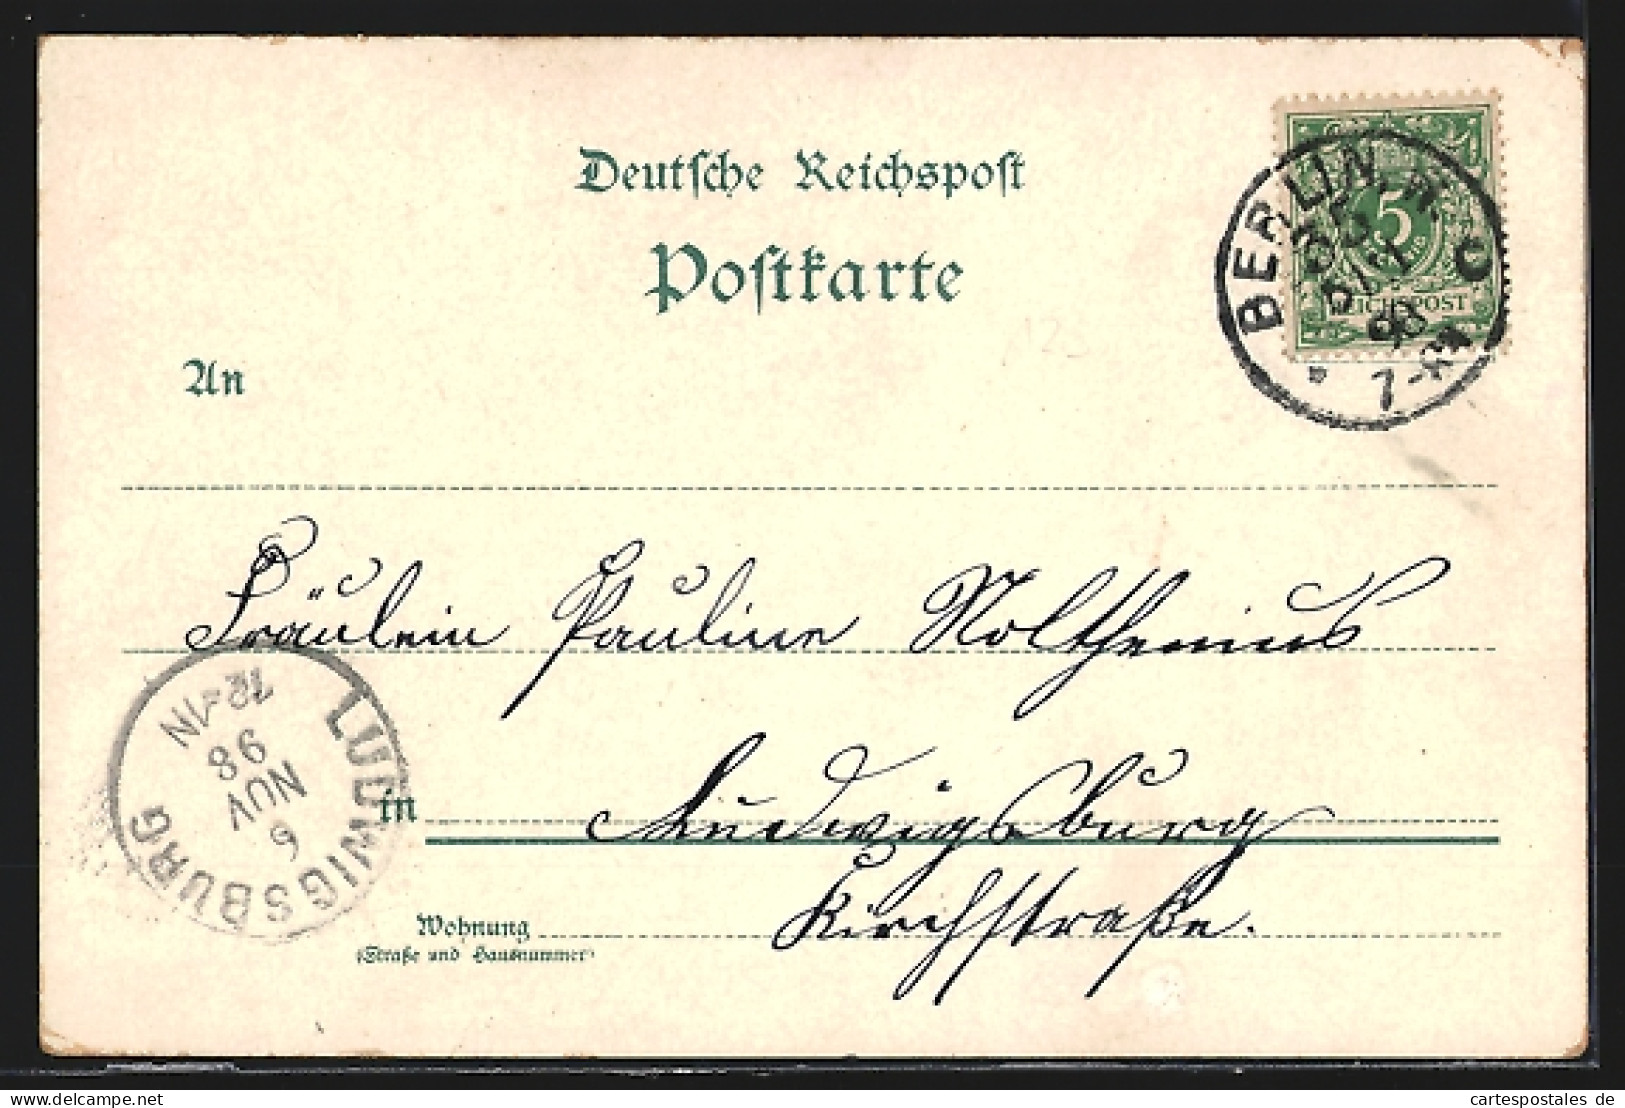 Deutsche Reichspost
Postkarte
BERLIN, W.
35
5/11
98
7-8N
C
5
REICHSPOST
An
Fräulein Pauline Nolthenius
LUDWIGSBURG
6
NOV
98
12-1N
in Ludwigsburg
Kirchstraße.
Wohnung
(Straße und Hausnummer)
cartespostales de